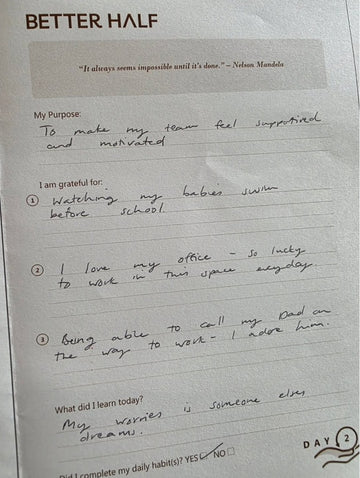 BETTER HALF
"It always seems impossible until it's done." – Nelson Mandela
My Purpose:
To make my team feel supported
and motivated
I am grateful for:
1 Watching my babies swim
before school.
2 I love my office - so lucky
to work in this space everyday.
3 Being able to call my Dad on
the way to work - I adore him.
What did I learn today?
My worries is someone elses
dreams.
DAY 2
Did I complete my daily habit(s)? YES NO